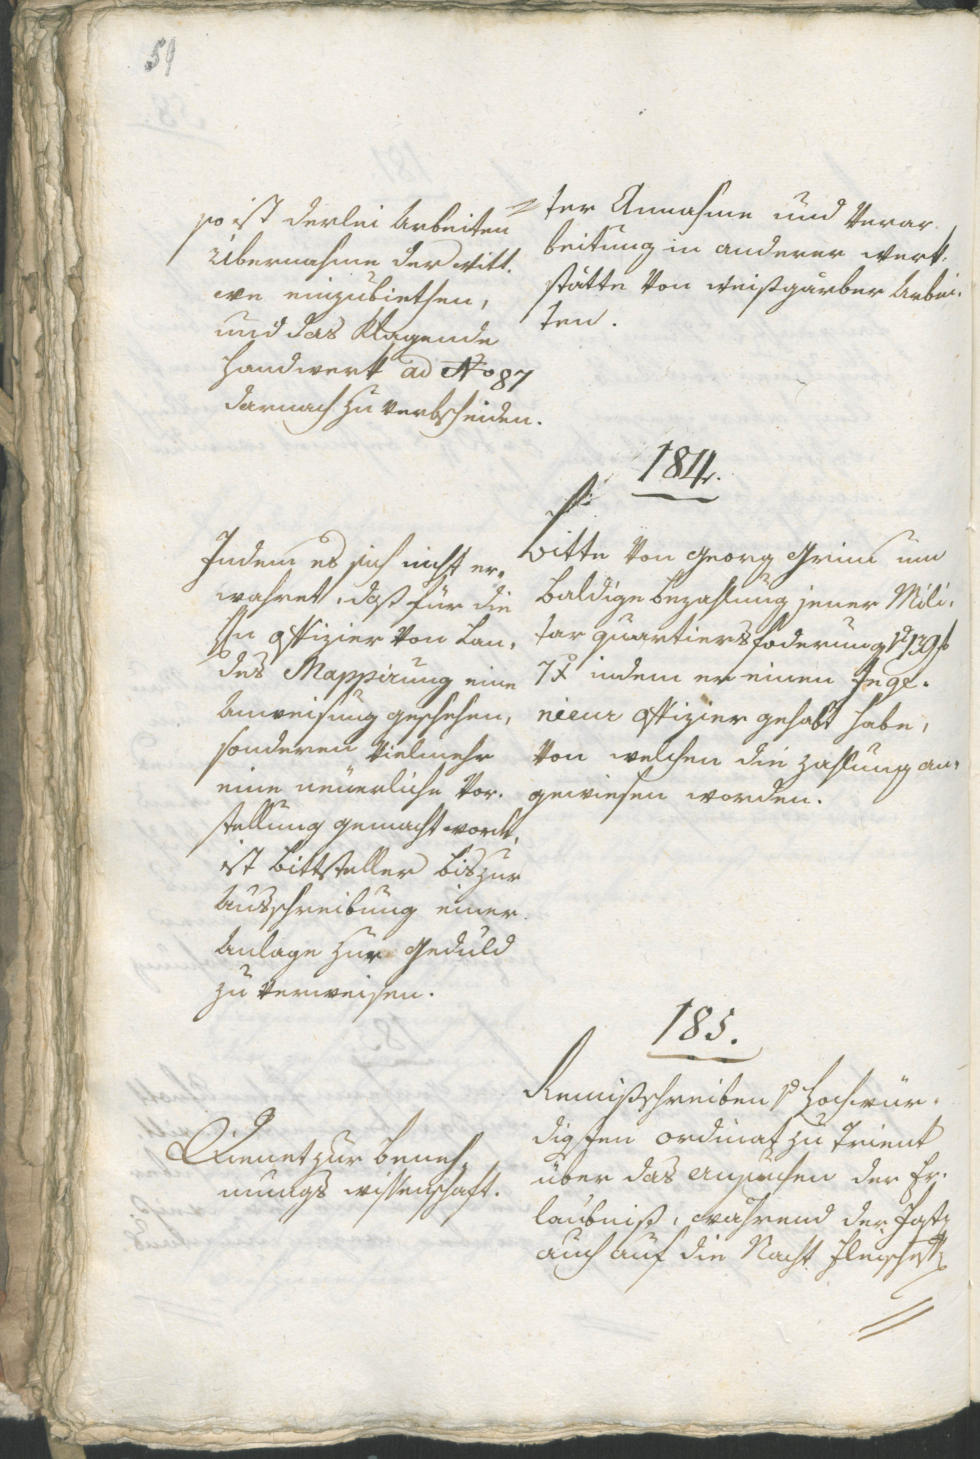 59
so ist derlei Arbeiten
Übernahme der Witt-
we einzubiethen,
und das Klagende
Handwerk ad No 87
darnach zu verbscheiden.
=ter Annahme und Verar
beitung in anderer Werk-
stätte von Weißgärber Arbei-
ten.
184.
Bitte von Georg Grim um
baldige Bezahlung jener Mili-
tar quartiersfoderung
7 x indem er einen Inge-
nieur Offizier gehabt habe,
von welchen die Zahlung an-
gewiesen worden.
Indem es sich nicht er-
wahret, daß für die
Hn Offizier von Lan-
des Mappirung eine
Anweisung geschehen,
sonderen vielmehr
eine neüerliche Vor-
stellung gemacht word.,
ist Bittsteller bis zur
Ausschreibung einer
Anlage zur Geduld
zu verweisen.
185.
Remißschreiben Hochwür-
digsten Ordinat zu Trient
über das Ansuchen der Er-
laubniß, während der Fast
auch auf die Nacht
Dienet zur Beneh-
mungs wissenschaft.